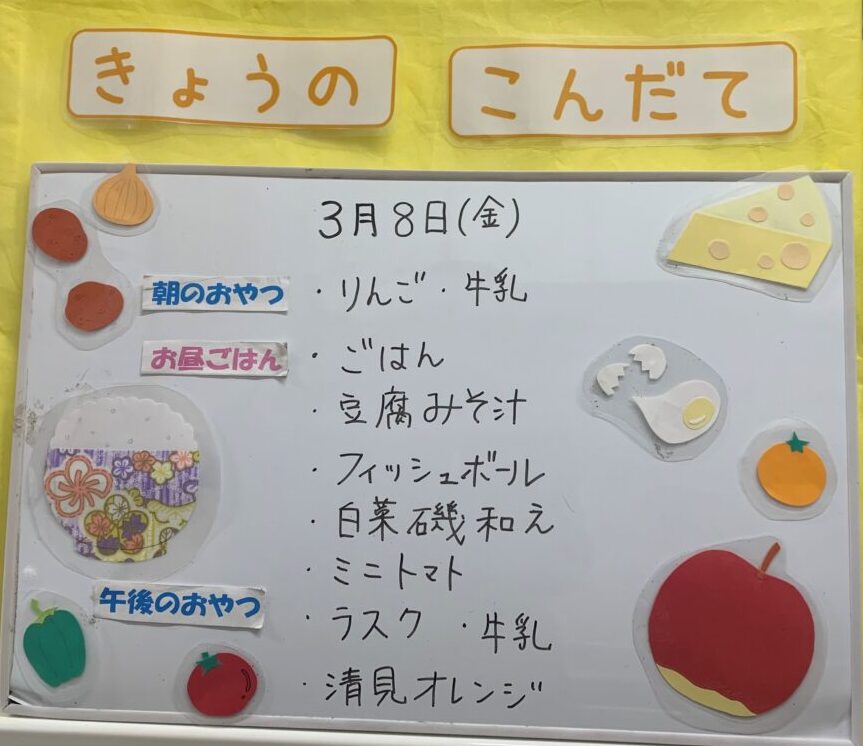 きょうの こんだて
3月8日(金)
朝のおやつ ・りんご ・牛乳
お昼ごはん ・ごはん
・豆腐みそ汁
・フィッシュボール
・白菜磯和え
・ミニトマト
午後のおやつ ・ラスク ・牛乳
・清見オレンジ